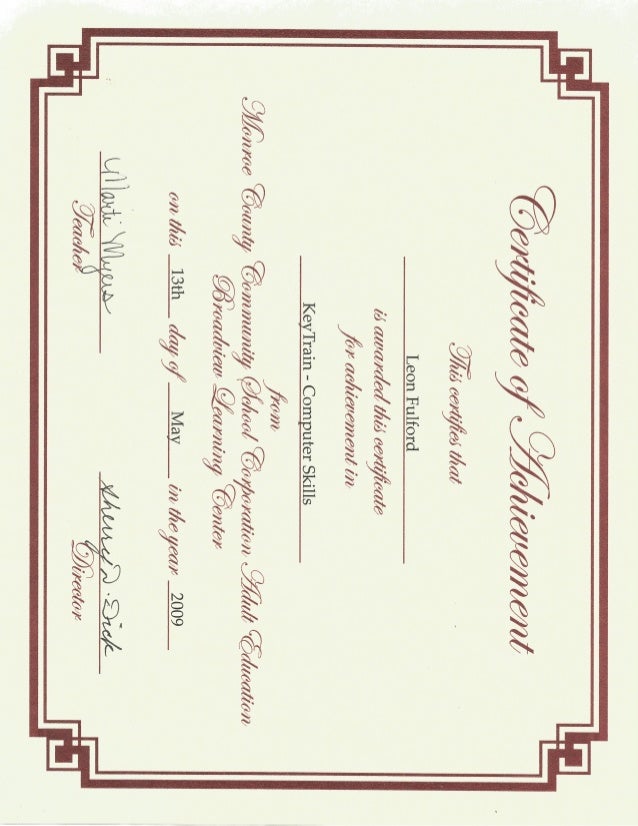 Certificate of Achievement
This certifies that
Leon Fulford
is awarded this certificate
for achievement in
KeyTrain - Computer Skills
from
Monroe County Community School Corporation Adult Education
Broadview Learning Center
on this 13th day of May in the year 2009
Marti Myers Sherry D. Dick
Teacher Director